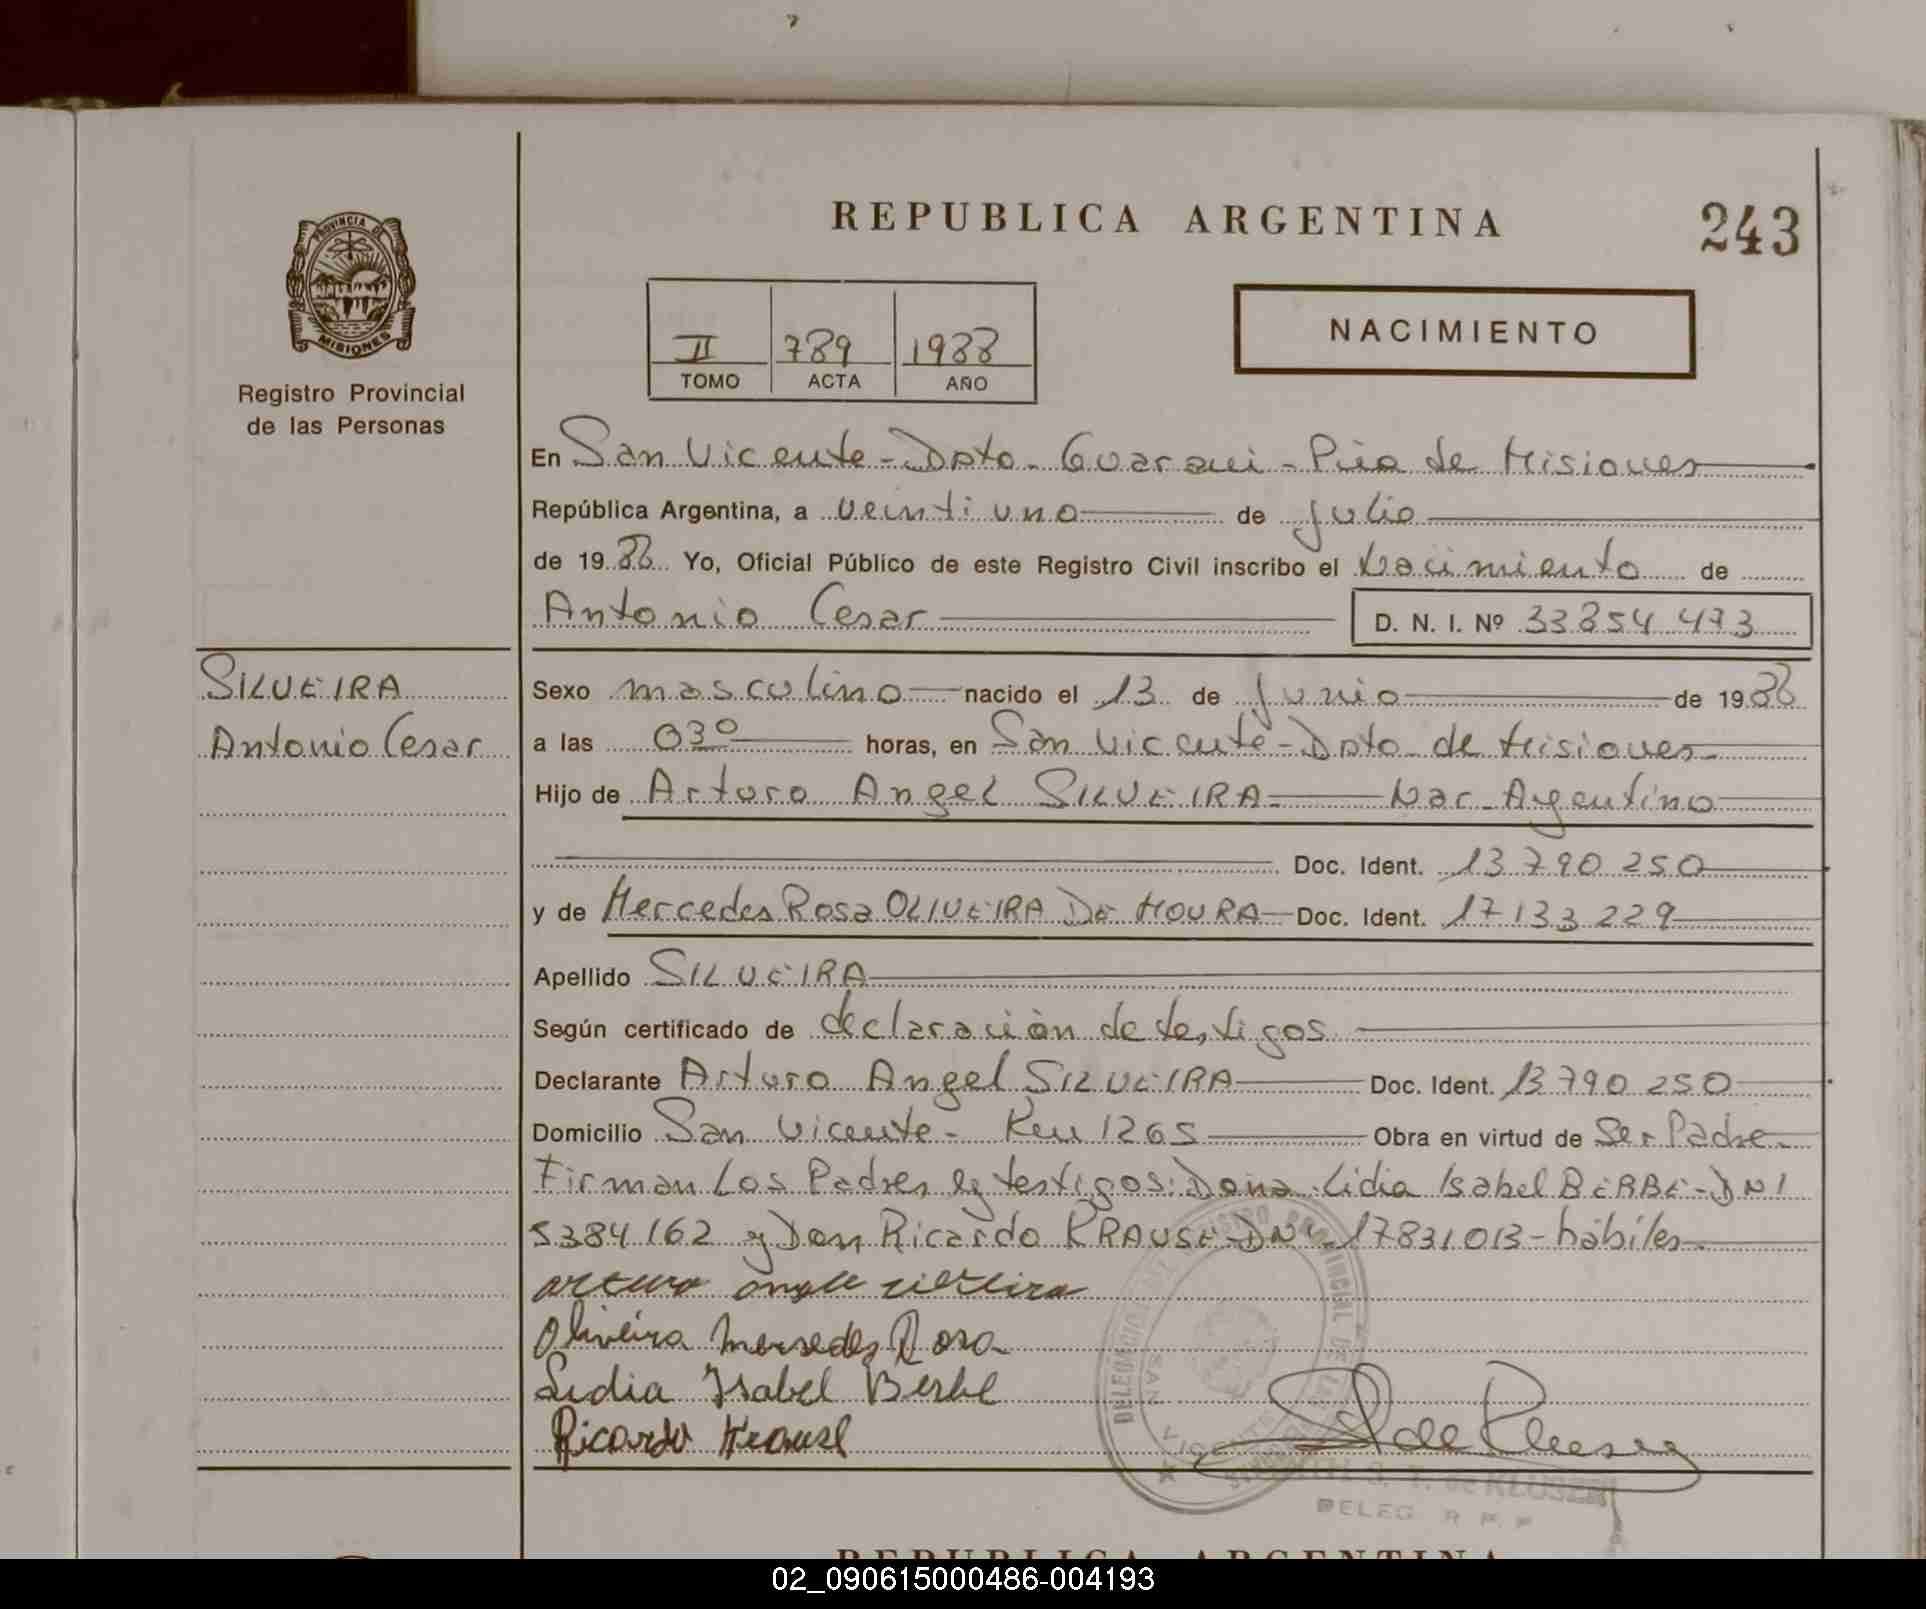 REPUBLICA ARGENTINA
243
PROVINCIA DE
MISIONES
Registro Provincial
de las Personas
II 789 1988
TOMO ACTA AÑO
NACIMIENTO
En San Vicente - Dpto. Guarani - Pcia de Misiones
República Argentina, a veintiuno de julio
de 1988 Yo, Oficial Público de este Registro Civil inscribo el Nacimiento de
Antonio Cesar D. N. I. Nº 33854473
SILVEIRA
Antonio Cesar
Sexo masculino nacido el 13 de junio de 1988
a las 03º horas, en San Vicente - Dpto de Misiones
Hijo de Arturo Angel SILVEIRA Nac. Argentino
Doc. Ident. 13 790 250
y de Mercedes Rosa OLIVEIRA DE MOURA Doc. Ident. 17 133 229
Apellido SILVEIRA
Según certificado de declaración de testigos
Declarante Arturo Angel SILVEIRA Doc. Ident. 13 790 250
Domicilio San Vicente - Km 1265 Obra en virtud de Ser Padre
Firman Los Padres y testigos: Doña Lidia Isabel BERBE - DNI
5384162 y Don Ricardo KRAUSE DNI 17831013 - hábiles
arturo angel silveira
Oliveira Mersedes Rosa
Lidia Isabel Berbe
Ricardo Krause
DELEGACION DEL REGISTRO PROVINCIAL DE LAS
SAN VICENTE
de KLUSEN
DELEG. R. P. P.
REPUBLICA ARGENTINA
02_090615000486-004193